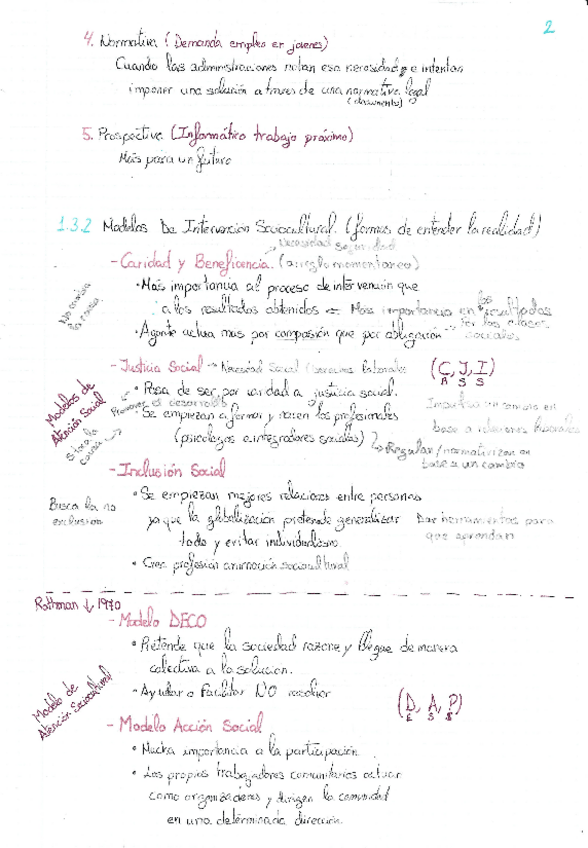 2
4. Normativa (Demanda empleo en jovenes)
Cuando las administraciones notan esa necesidad e intentan
imponer una solución a traves de una normativa legal
(documento)
5. Prospectiva (Informático trabajo próximo)
Más para un futuro
1.3.2 Modelos De Intervención Sociocultural. (formas de entender la realidad)
→ Necesidad seguridad
- Caridad y Beneficencia. (arreglo momentaneo)
No cambia la causa
• Más importancia al proceso de intervención que
a los resultados obtenidos Más importancia en los resultados
• Agente actua mas por compasión que por obligación por las clases sociales
- Justicia Social → Necesidad Social (derechos laborales (C, J, I)
A S S
Modelos de Atención Social
• Pasa de ser por caridad a justicia social.
Promover el desarrollo
Impulsa un cambio en
base a relaciones laborales
• Se empiezan a formar y nacen los profesionales
(psicologos o integradores sociales) → Regular/normativizan en
base a un cambio
causa →
- Inclusión Social
Busca la no exclusion
• Se empiezan mejores relaciones entre personas
ya que la globalización pretende generalizar Dar herramientas para
todo y evitar individualismo. que aprendan
• Crea profesión animación sociocultural
Rothman ↓ 1970
- Modelo DECO
• Pretende que la sociedad razone y llegue de manera
colectiva a la solucion.
- Ayudar o Facilitar NO resolver
(D, A, P)
E S S
Modelo de Atención Sociocultural
- Modelo Acción Social
• Mucha importancia a la participación.
• Los propios trabajadores comunitarios actuan
como organizadores y dirigen la comunidad
en una determinada dirección.